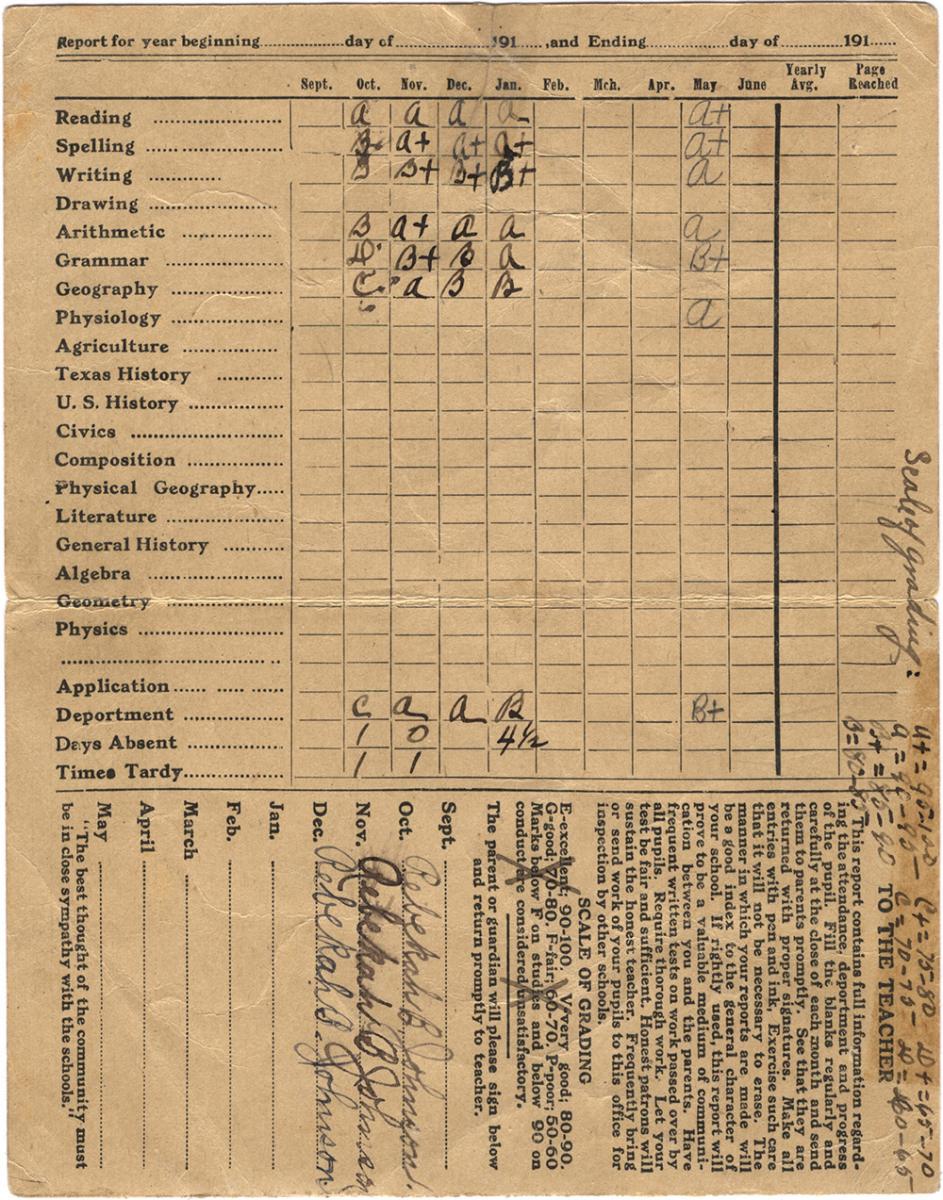 Report for year beginning...............day of...............191...., and Ending...............day of...............191.....
Sept. Oct. Nov. Dec. Jan. Feb. Mch. Apr. May June Yearly Avg. Page Reached
Reading A A A A A+
Spelling A+ A+ A+ A+
Writing B B+ B+ B+ A
Drawing
Arithmetic B A+ A A A
Grammar D B+ B A B+
Geography C A B B
Physiology A
Agriculture
Texas History
U. S. History
Civics
Composition
Physical Geography
Literature
General History
Algebra
Geometry
Physics
Application
Deportment C A A B B+
Days Absent 1 0 4½
Times Tardy 1 1
Scale of grading:
A+ = 95-100 C+ = 75-80 D+ = 65-70
A = 90-95- C = 70-75- D = 60-65-
B+ = 85-90
B = 80-85
TO THE TEACHER
This report contains full information regard-
ing the attendance, deportment and progress
of the pupil. Fill the blanks regularly and
carefully at the close of each month and send
them to parents promptly. See that they are
returned with proper signatures. Make all
entries with pen and ink. Exercise such care
that it will not be necessary to erase. The
manner in which your reports are made will
be a good index to the general character of
your school. If rightly used, this report will
prove to be a valuable medium of communi-
cation between you and the parents. Have
frequent written tests on work passed over by
all pupils. Require thorough work. Let your
test be fair and sufficient. Honest patrons will
sustain the honest teacher. Frequently bring
or send work of your pupils to this office for
inspection by other schools.
SCALE OF GRADING
E-excellent; 90-100, V-very good; 80-90,
G-good; 70-80, F-fair; 60-70, P-poor; 50-60
Marks below F on studies and below 90 on
conduct are considered unsatisfactory.
The parent or guardian will please sign below
and return promptly to teacher.
Sept.
Oct. Rebekah B Johnson.
Nov. Rebekah B Johnson
Dec. Rebekah B. Johnson
Jan.
Feb.
March
April
May
"The best thought of the community must
be in close sympathy with the schools."